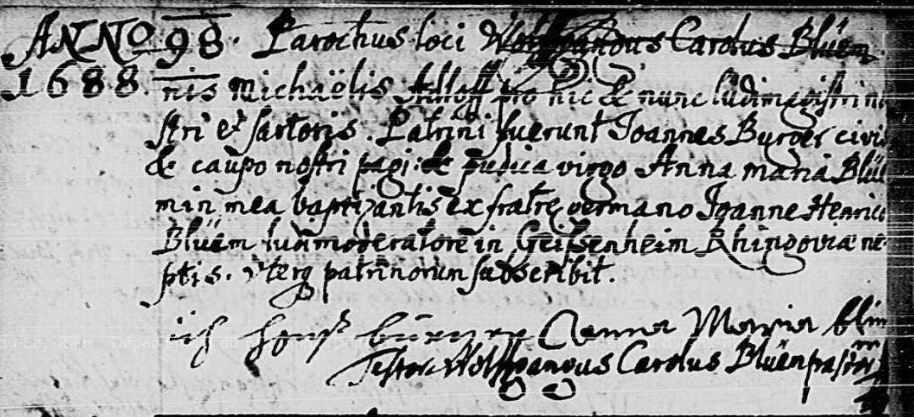 ANNO 98. Parochus loci Wolffgangus Carolus Blüem
1688. nis Michaëlis pro hic & nunc ludimagistri no
stri et sartoris. Patrini fuerunt Joannes Burger civis
& caupo nostri pagi: & pudica virgo Anna Maria Blüe
min mea baptizantis ex fratre germano Joanne Henrico
Blüem ludimoderatore in Geisenheim Rhingoviæ ne-
ptis. uterq patrinorum subscribit.
ich Anna Maria blim
Testor Wolffgangus Carolus Blüem pastor